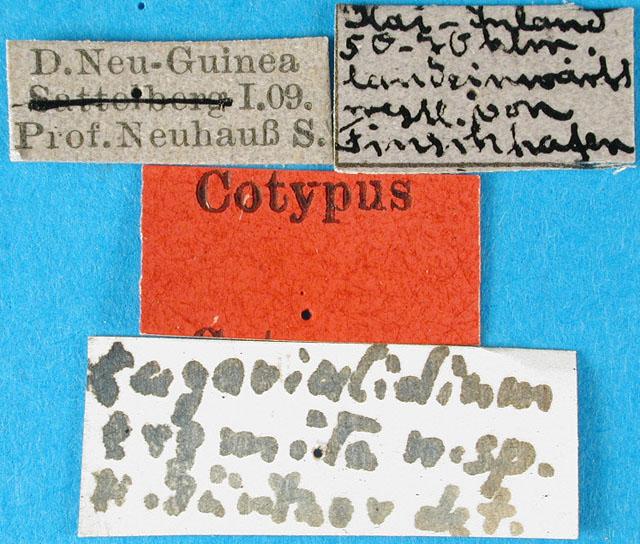 D. Neu-Guinea
Sattelberg I.09.
Prof. Neuhauß S.
Kai-Inland
50-70 klm.
landeinwärts
westl. von
Finschhafen
Cotypus
n.sp.
K. Günther det.